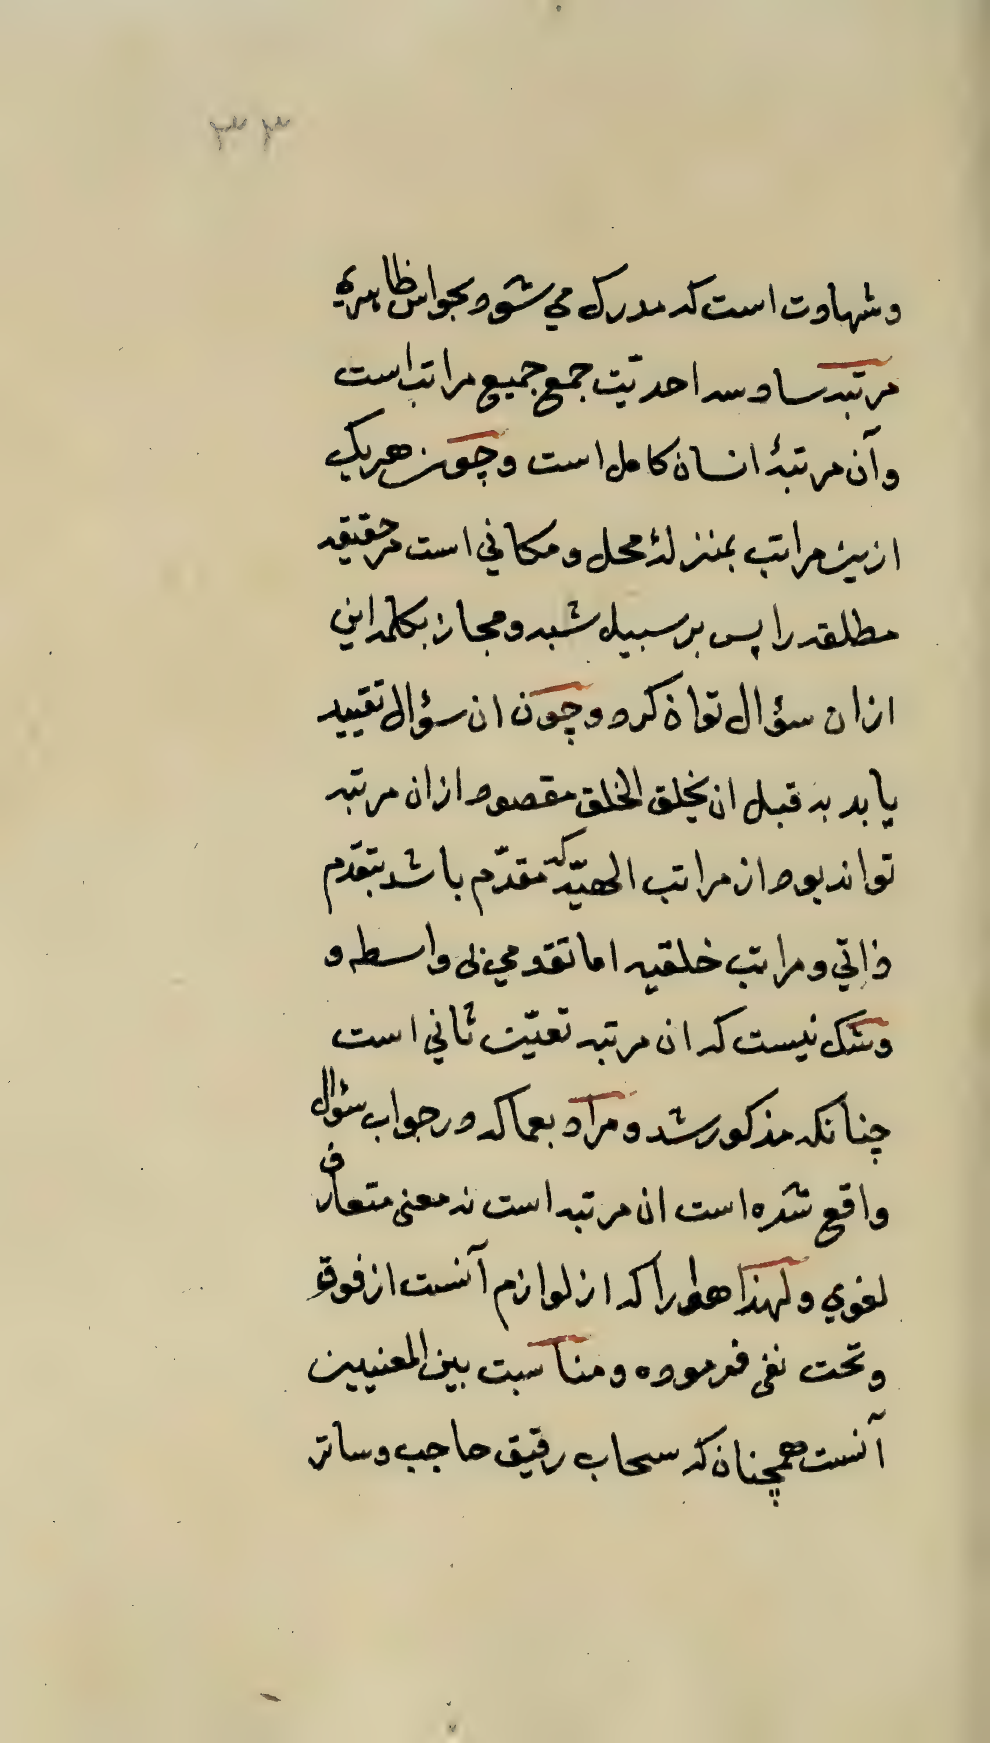 ۳۳
و شهادت است که مدرک می شود بحواس ظاهری
مرتبه سادسه احدیّت جمع جمیع مراتب است
و آن مرتبهٔ انسان کامل است و چون هر یک
ازین مراتب بمنزلهٔ محل و مکانی است مر حقیقه
مطلقه را پس بر سبیل شبه و مجاز بکلمه این
ازان سؤال توان کرد و چون ان سؤال تقیید
یابد به قبل ان یخلق الخلق مقصود ازان مرتبه
تواند بود از مراتب الهیّه که مقدّم باشد بتقدّم
ذاتی و مراتب خلقیه اما تقدمی بی واسطه و
و شک نیست که ان مرتبه تعیّن ثانی است
چنانکه مذکور شد و مراد بعما که در جواب سؤال
واقع شده است ان مرتبه است نه معنی متعارف
لغوی و لهذا هوا را که از لوازم آنست از فوق
و تحت نفی فرموده و مناسبت بین المعنیین
آنست همچنان که سحاب رقیق حاجب و ساتر